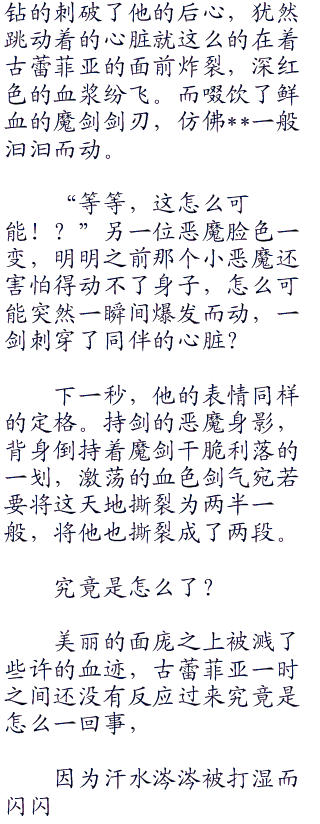 钻的刺破了他的后心，犹然
跳动着的心脏就这么的在着
古蕾菲亚的面前炸裂，深红
色的血浆纷飞。而啜饮了鲜
血的魔剑剑刃，仿佛**一般
汩汩而动。
“等等，这怎么可
能！？”另一位恶魔脸色一
变，明明之前那个小恶魔还
害怕得动不了身子，怎么可
能突然一瞬间爆发而动，一
剑刺穿了同伴的心脏？
下一秒，他的表情同样
的定格。持剑的恶魔身影，
背身倒持着魔剑干脆利落的
一划，激荡的血色剑气宛若
要将这天地撕裂为两半一
般，将他也撕裂成了两段。
究竟是怎么了？
美丽的面庞之上被溅了
些许的血迹，古蕾菲亚一时
之间还没有反应过来究竟是
怎么一回事，
因为汗水涔涔被打湿而
闪闪